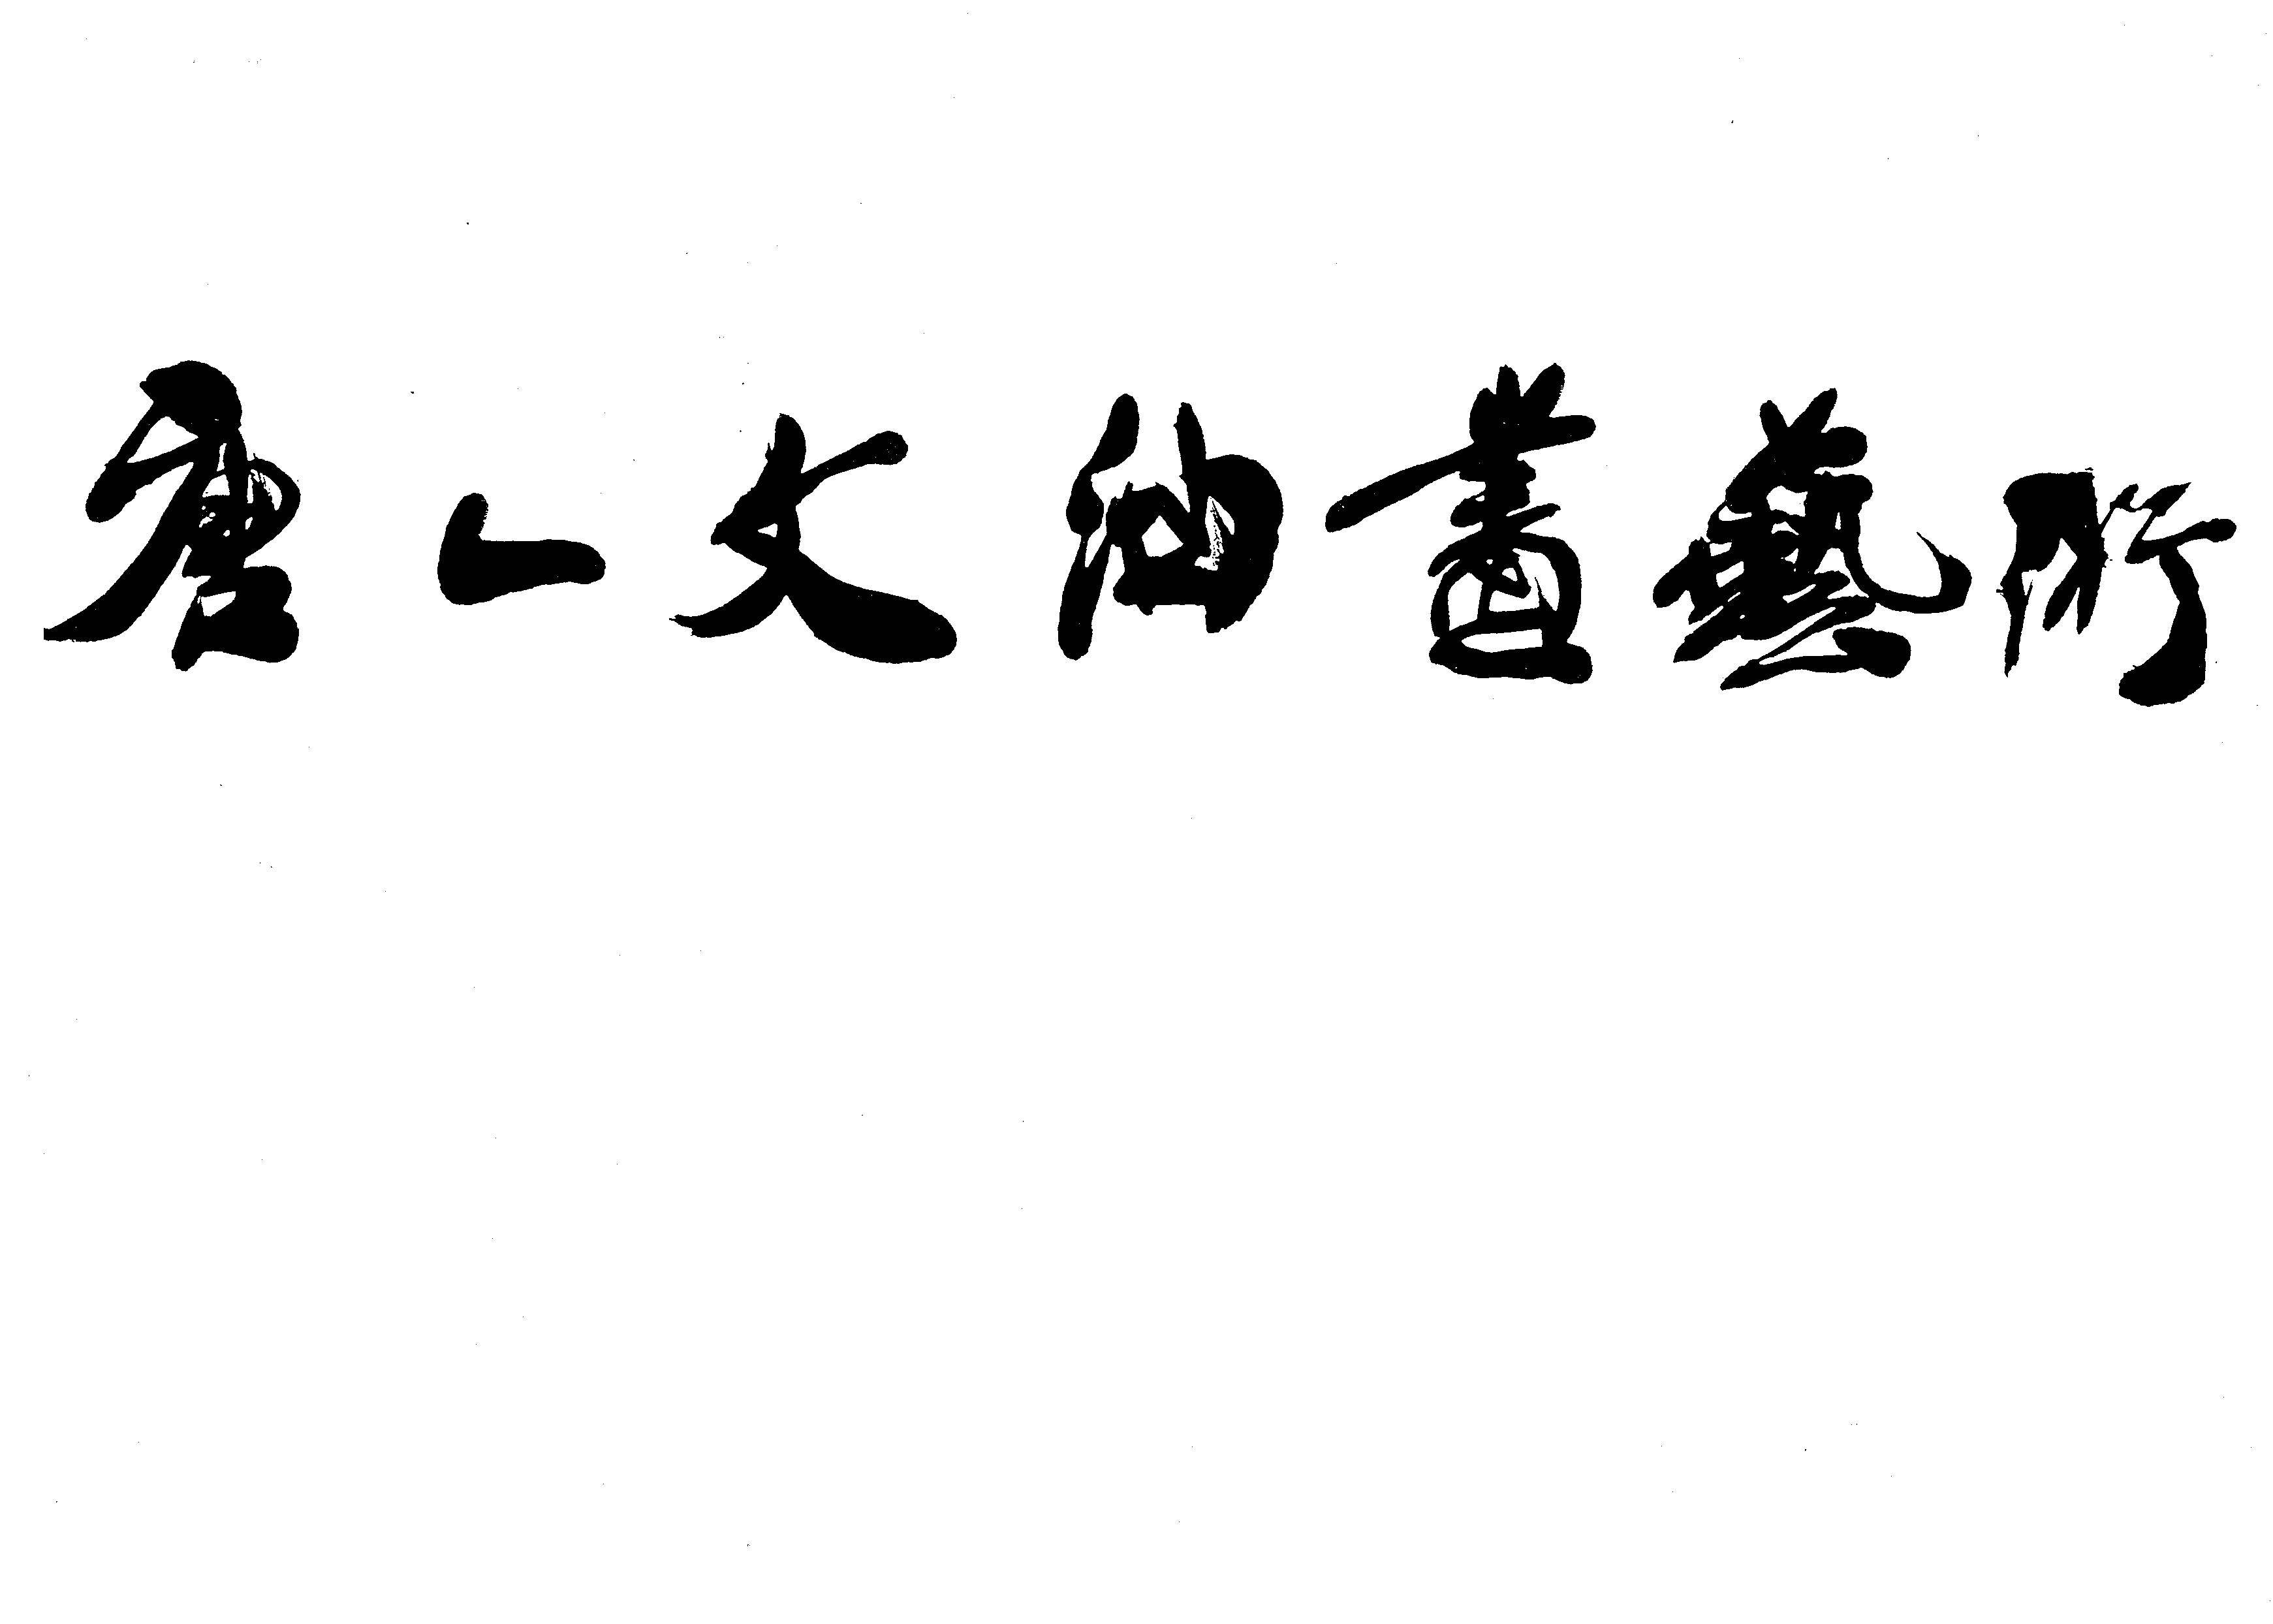 唐一文油畫藝術